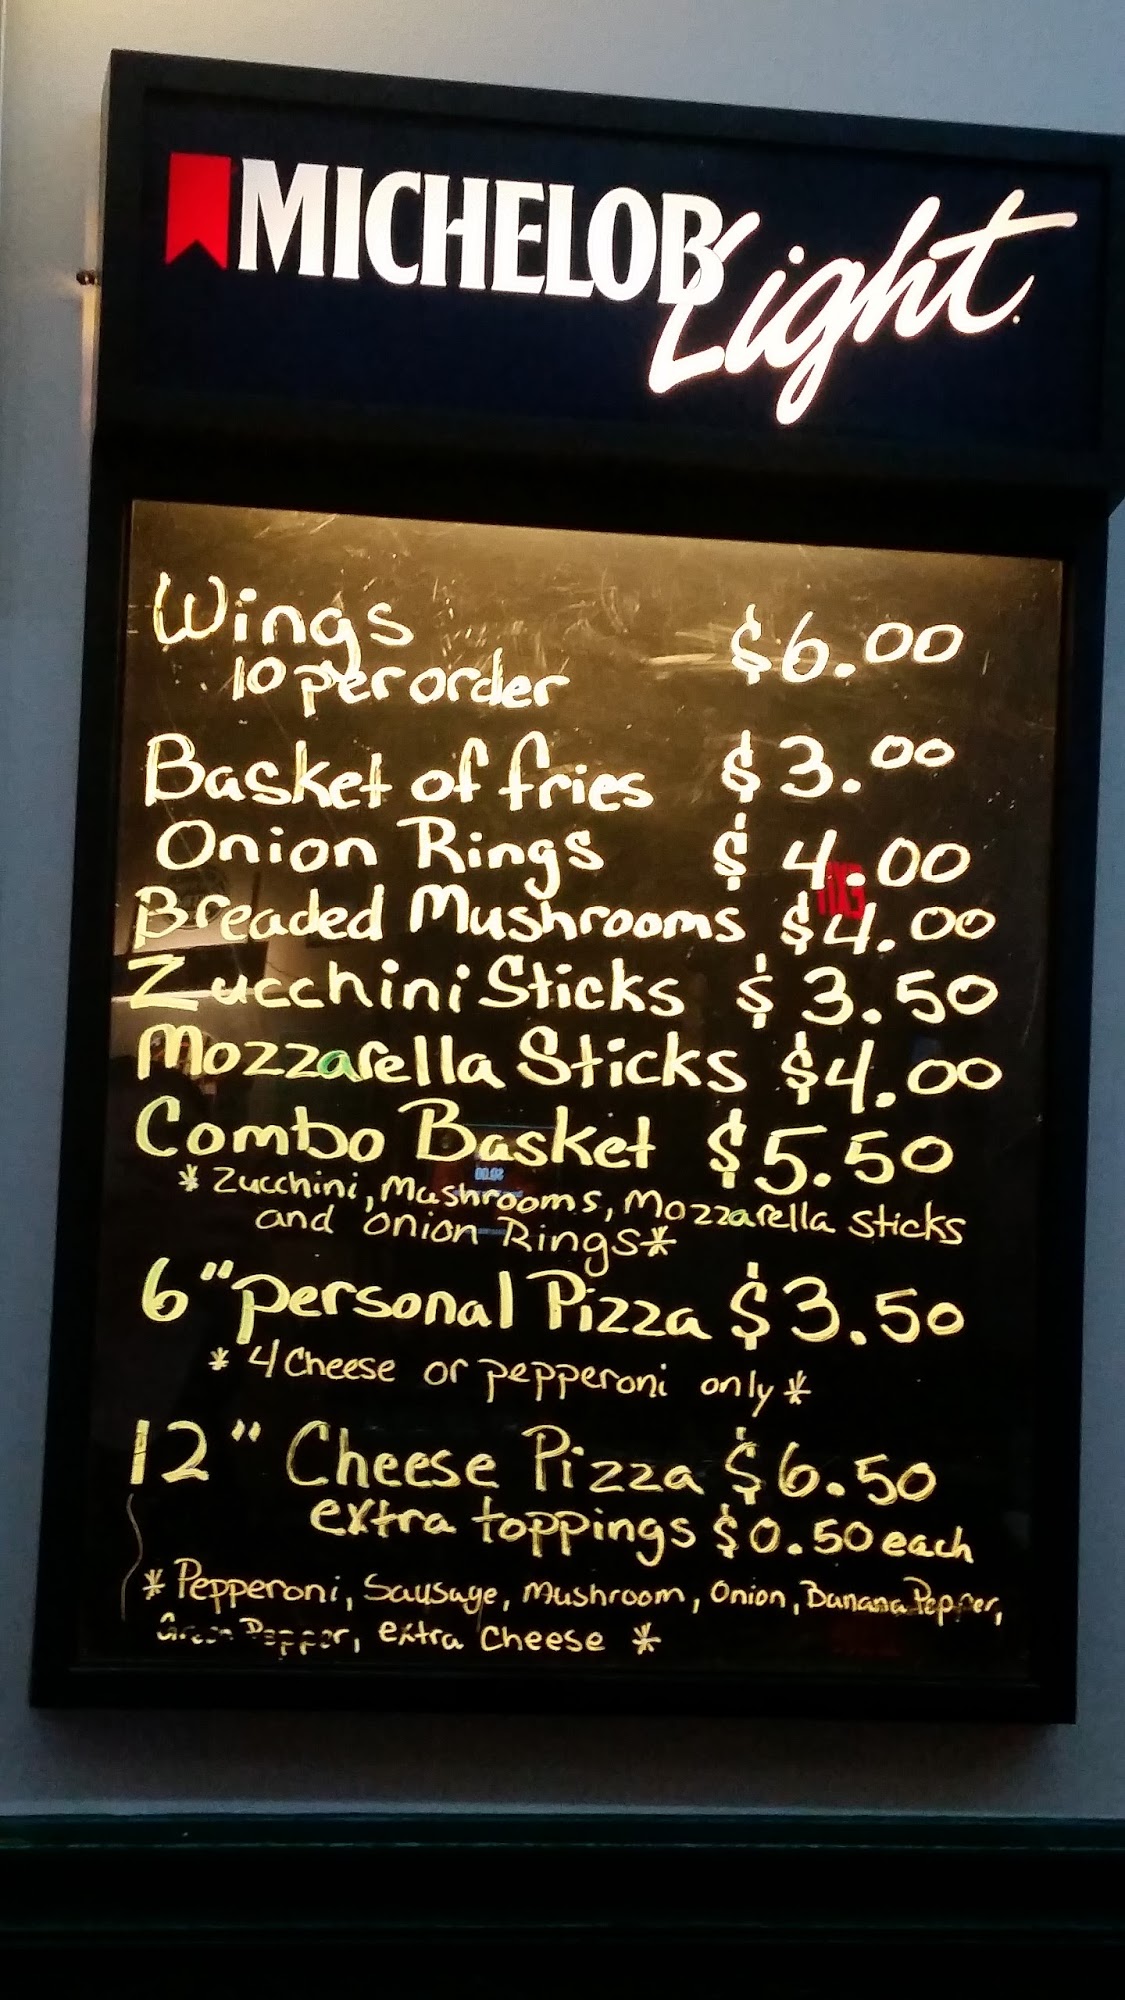 MICHELOB Light
Wings $6.00
10 per order
Basket of fries $3.00
Onion Rings $4.00
Breaded Mushrooms $4.00
Zucchini Sticks $3.50
Mozzarella Sticks $4.00
Combo Basket $5.50
* Zucchini, Mushrooms, Mozzarella sticks
and onion Rings *
6" personal Pizza $3.50
* 4 Cheese or pepperoni only *
12" Cheese Pizza $6.50
extra toppings $0.50 each
* Pepperoni, Sausage, Mushroom, Onion, Banana Pepper,
Green Pepper, extra cheese *